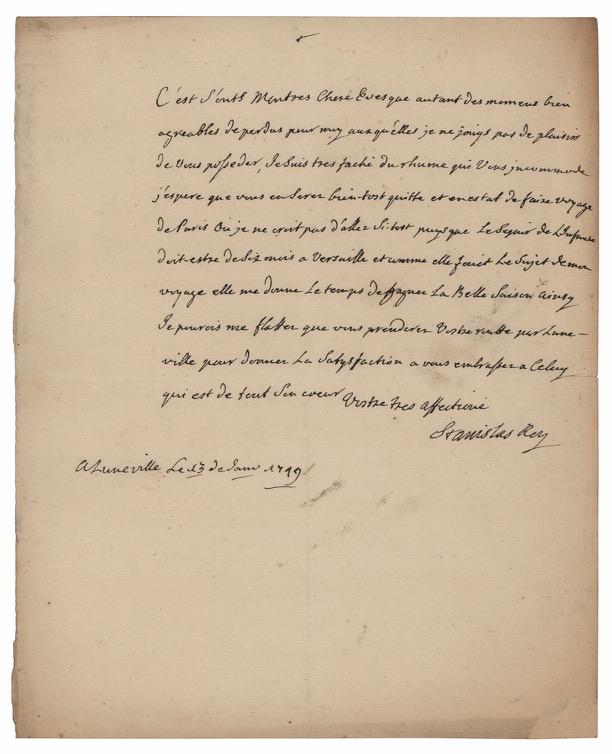 C'est S'onts Montres Cheré Evesque autant des momens bien
agreables de perdus pour moy auxqu'elles je ne jouis pas de plaisir
de vous posseder, Je suis tres faché du rhume qui Vous jncommode
j'espere que vous en Serez bien-tost quitte et en estat de faire voyage
de Paris Où je ne croit pas d'allez Si-tost puysque Le Sejour de L'Infante
doit-estre de Six mois a Versaille et comme elle fait Le Sujet de mon
voyage elle me donne Le temps de gagner La Belle Saison ainsy
Je pourois me flatter que vous prenderez Vostre rutte par Lune-
ville pour donner La Satysfaction a vous embrasser a Celuy
qui est de tout Son coeur Vostre tres affectioné
Stanislas Roy
A Luneville Le 13 de Janv 1749